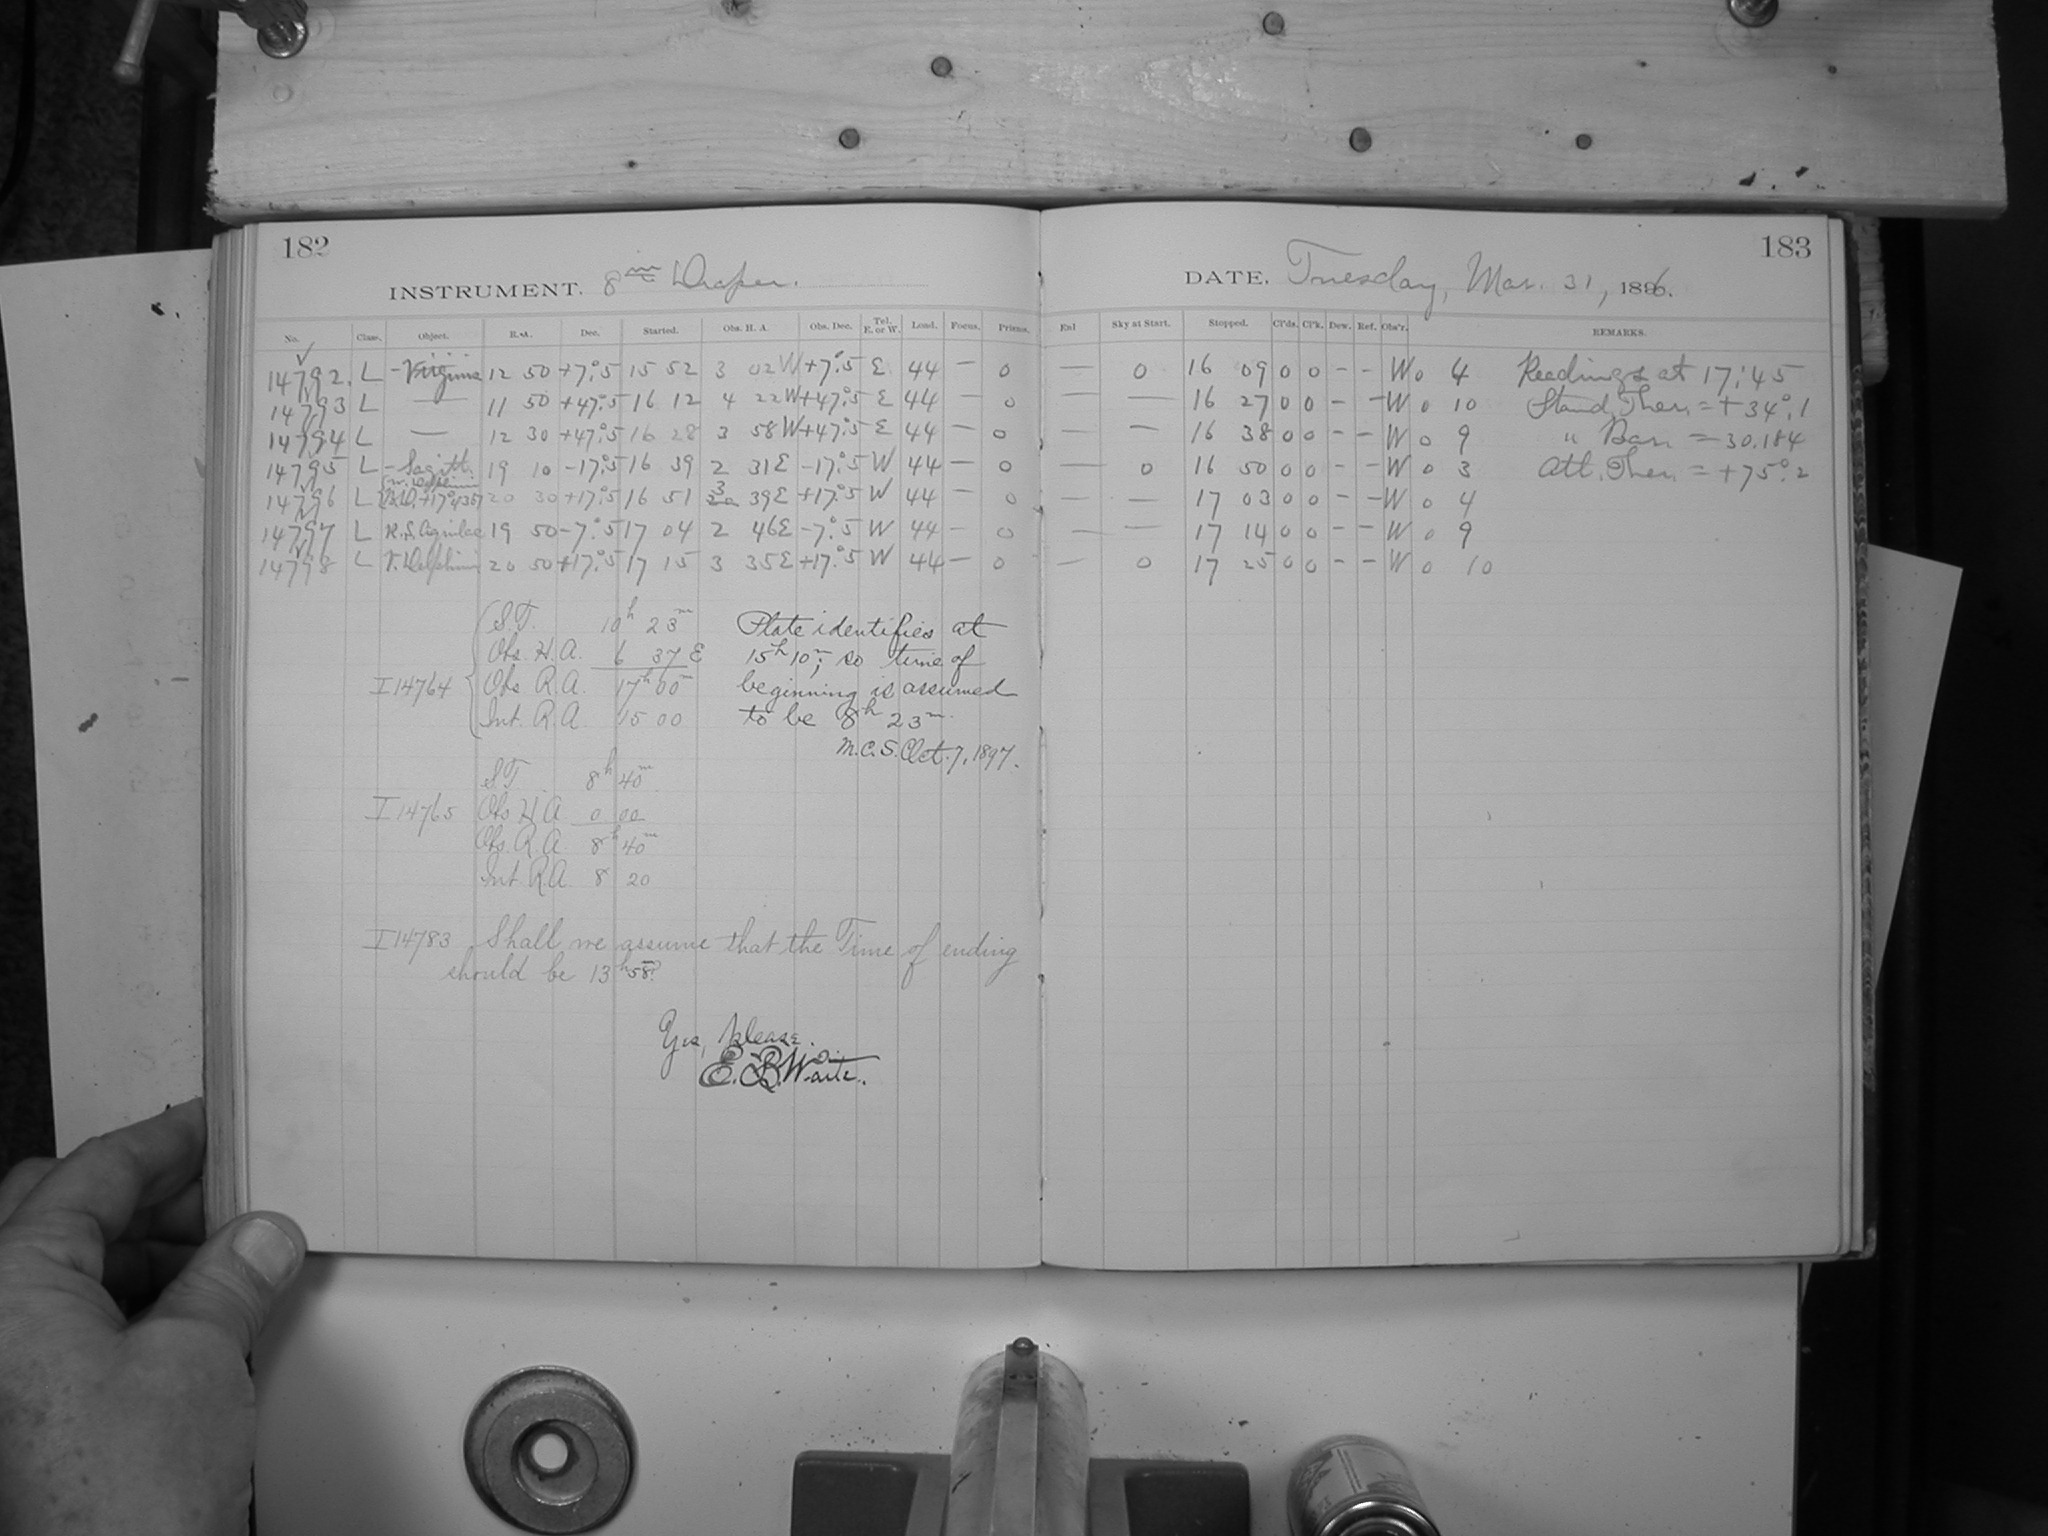 182
INSTRUMENT. 8 in Draper.
No. Class. Object. R.A. Dec. Started. Obs. H. A. Obs. Dec. Tel. E. or W. Lond. Focus. Prisms.
14792. L - Virginis 12 50 +7°.5 15 52 3 02 W +7°.5 E 44 — 0
14793 L — 11 50 +47°.5 16 12 4 22 W +47°.5 E 44 — 0
14794 L — 12 30 +47°.5 16 28 3 58 W +47°.5 E 44 — 0
14795 L - Sagitt. 19 10 -17°.5 16 39 2 31 E -17°.5 W 44 — 0
14796 L W. Delphini B.D.+17°4367 20 30 +17°.5 16 51 3 39 E +17°.5 W 44 — 0
14797 L R.S. Aquilae 19 50 -7°.5 17 04 2 46 E -7°.5 W 44 — 0
14798 L V. Delphini 20 50 +17°.5 17 15 3 35 E +17°.5 W 44 — 0
I 14764
S.T. 10h 23m
Obs. H.A. 6 37 E
Obs R.A. 17h 00m
Int. R.A. 15 00
Plate identifies at
15h 10m; so time of
beginning is assumed
to be 8h 23m.
M.C.S. Oct. 7, 1897.
I 14765
S.T. 8h 40m
Obs H.A 0 00
Obs. R.A. 8h 40m
Int. R.A. 8 20
I 14783 Shall we assume that the Time of ending
should be 13h 58m?
Yes, please.
E. R. Waite.
183
DATE. Tuesday, Mar. 31, 1896.
Enl Sky at Start. Stopped. Cl'ds. Cl'k. Dew. Ref. Obs'r. REMARKS.
— 0 16 09 0 0 - - W 0 4 Readings at 17:45
— — 16 27 0 0 - - W 0 10 Stand. Ther. = +34°.1
— — 16 38 0 0 - - W 0 9 " Bar. = 30.184
— 0 16 50 0 0 - - W 0 3 Att. Ther. = +75°.2
— — 17 03 0 0 - - W 0 4
— — 17 14 0 0 - - W 0 9
— 0 17 25 0 0 - - W 0 10